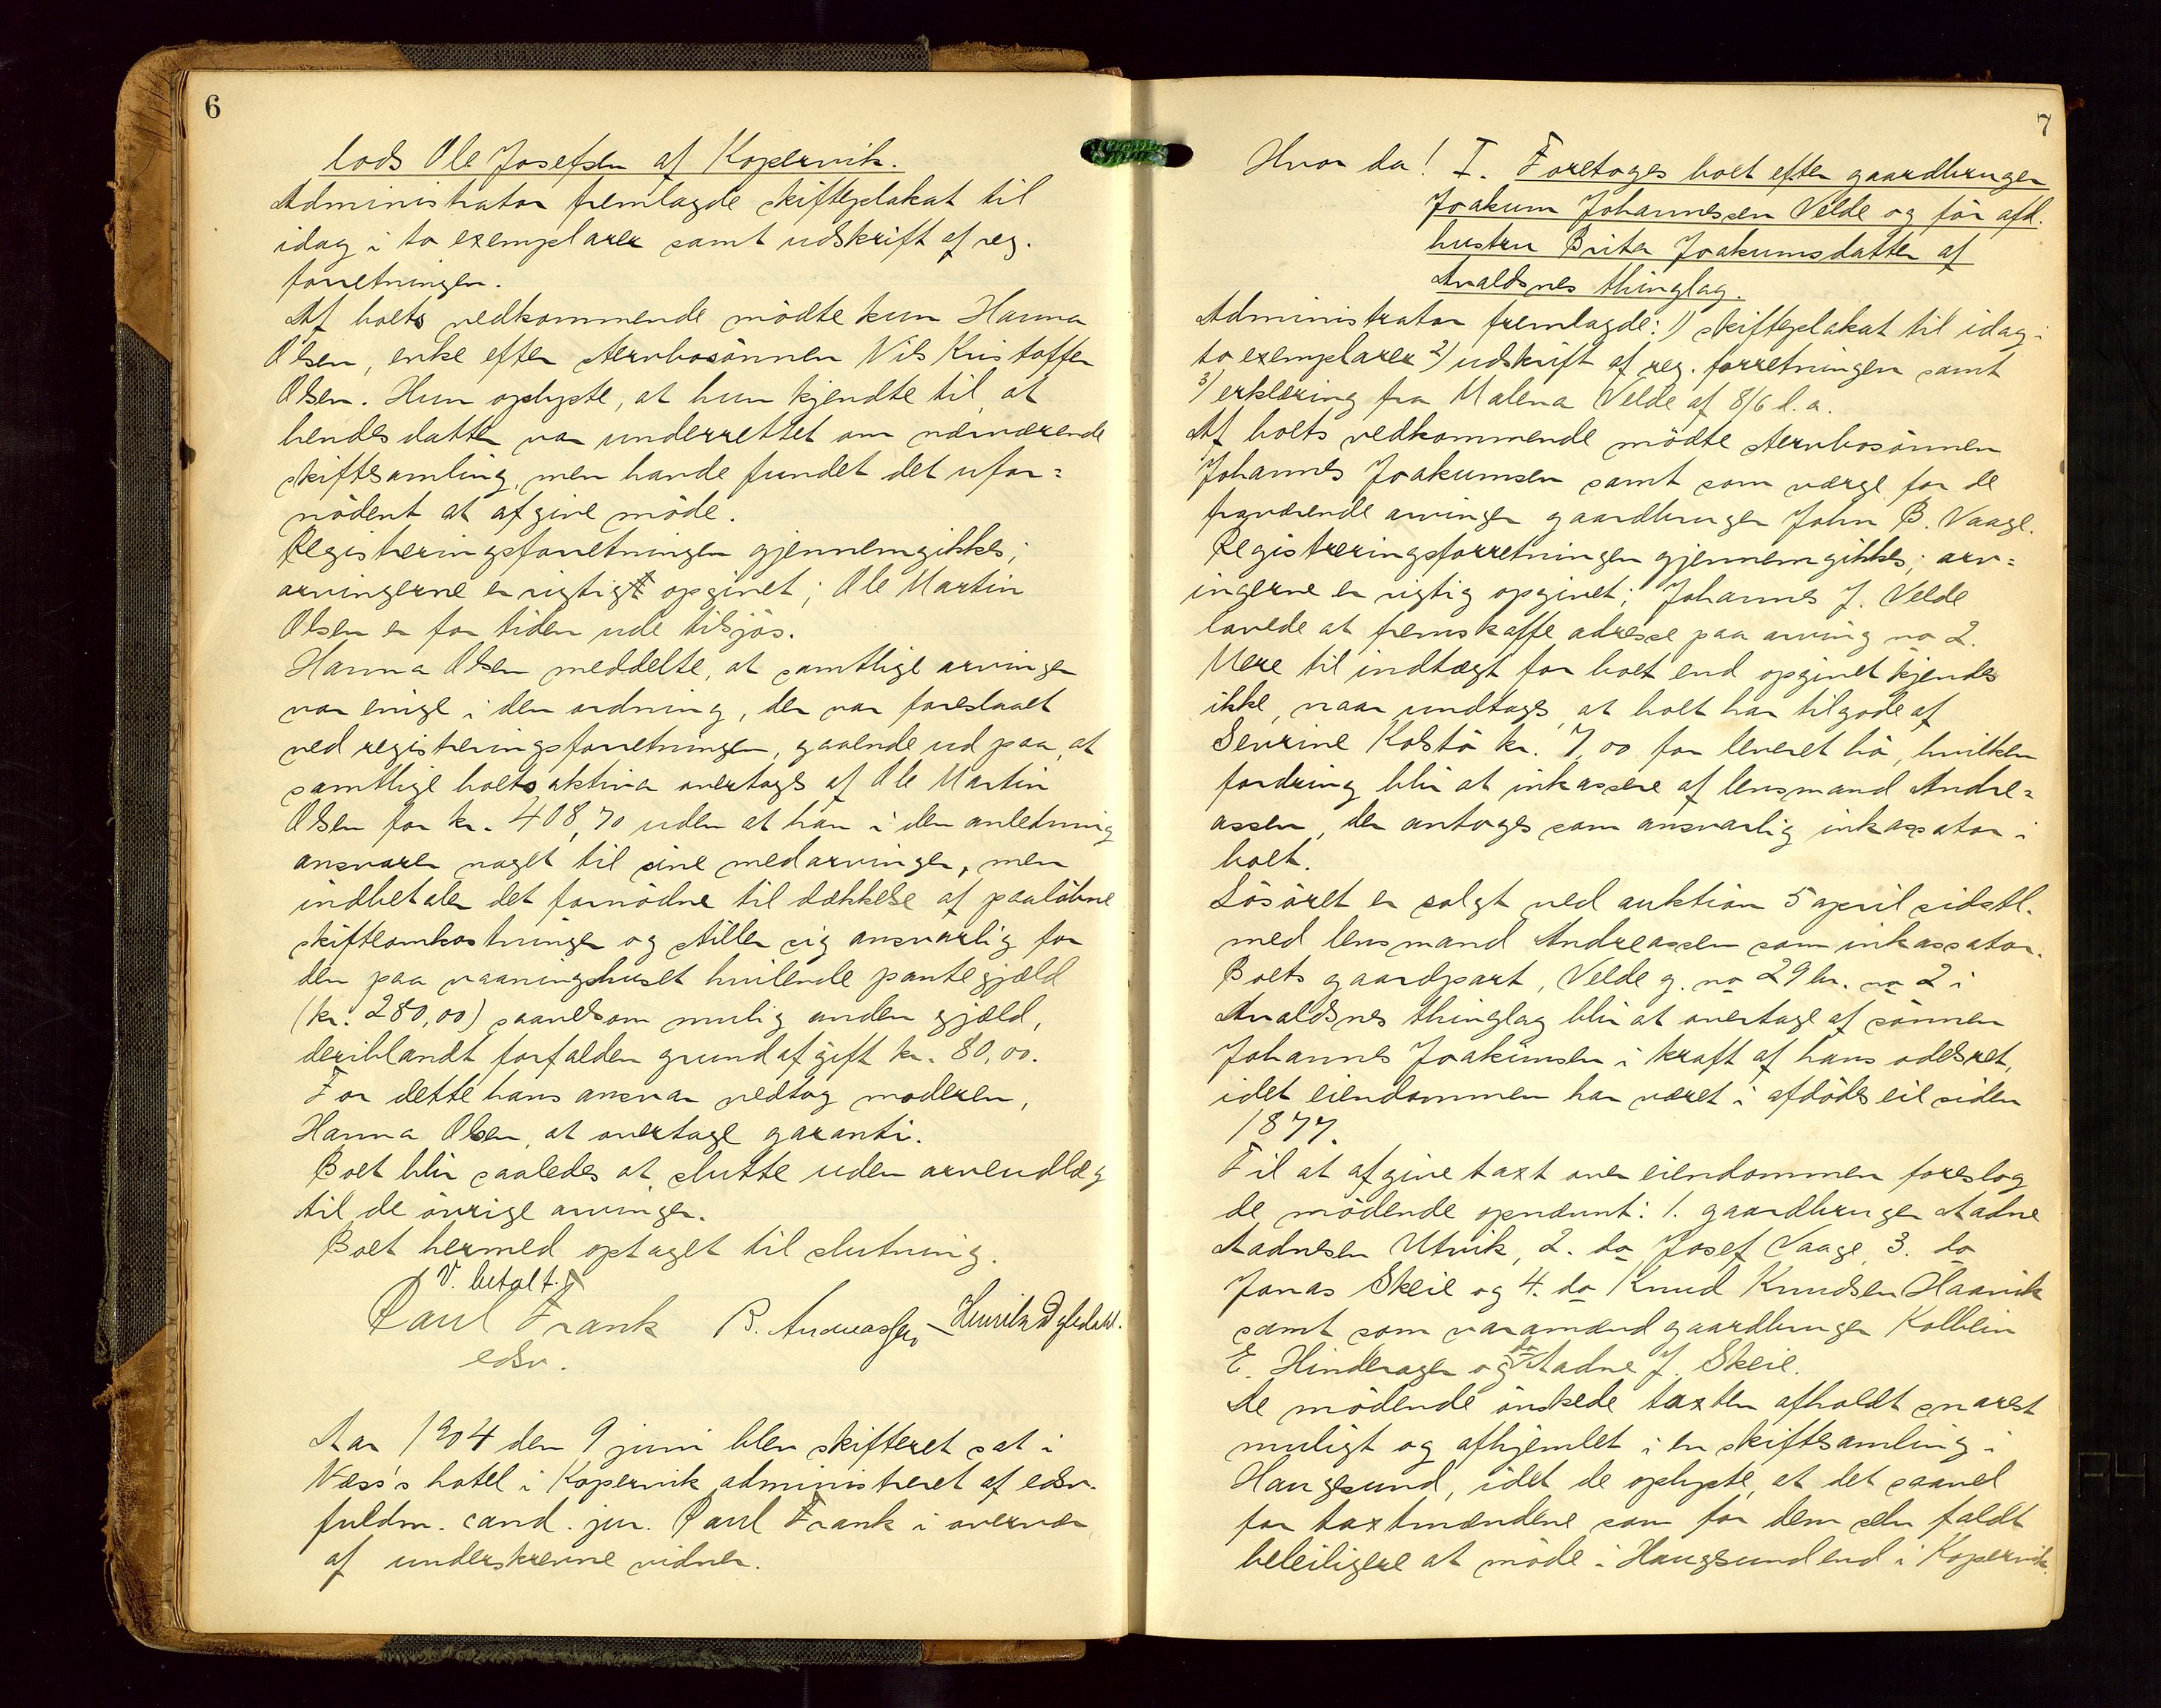 6
lods Ole Josefsen af Kopervik.
Administrator fremlagde skifteplakat til
idag i to exemplarer samt udskrift af reg.
forretningen.
Af boets vedkommende mödte kun Hanna
Olsen, enke efter stervbosönnen Nils Kristoffer
Olsen. Hun oplyste, at hun kjendte til, at
hendes datter var underrettet om nærværende
skiftesamling, men havde fundet det ufor=
nödent at afgive möde.
Registreringsforretningen gjennemgikkes;
arvingerne er rigtigt opgivet; Ole Martin
Olsen er for tiden ude tilsjös.
Hanna Olsen meddelte, at samtlige arvinger
var enige i den ordning, der var foreslaaet
ved registreringsforretningen, gaaende ud paa, at
samtlige boets aktiva overtages af Ole Martin
Olsen for kr. 408,70 uden at han i den anledning
ansvarer noget til sine medarvinger, men
indbetaler det fornödne til dækkelse af paalöbne
skifteomkostninger og stiller sig ansvarlig for
den paa vaaningshuset hvilende pantegjæld
(kr. 280,00) saavelsom mulig anden gjæld,
deriblandt forfalden grundafgift kr. 80,00.
For dette hans ansvar vedtog moderen,
Hanna Olsen, at overtage garanti.
Boet blir saaledes at slutte uden arveudlæg
til de övrige arvinger.
Boet hermed optaget til slutning.
V. betalt.
Paul Frank B. Andreassen – Henrik Dybdahl.
edsv.
Aar 1904 den 9 juni blev skifteret sat i
Næss's hotel i Kopervik administreret af edsv.
fuldm. cand. jur. Paul Frank i overvær
af underskrevne vidner.
7
Hvor da! I. Foretoges boet efter gaardbruger
Joakum Johannessen Velde og för afd.
hustru Brita Joakumsdatter af
Avaldsnes thinglag.
Administrator fremlagde: 1) skifteplakat til idag i
to exemplarer 2) udskrift af reg. forretningen samt
3) erklæring fra Malena Velde af 8/6 d. a.
Af boets vedkommende mödte stervbosönnen
Johannes Joakumsen samt som værge for de
fraværende arvinger gaardbruger John B. Vaage.
Registreringsforretningen gjennemgikkes; arv=
ingerne er rigtig opgivet; Johannes J. Velde
lovede at fremskaffe adresse paa arving no 2.
Mere til indtægt for boet end opgivet kjendes
ikke, naar undtages, at boet har tilgode af
Sevrine Kolstö kr. 7,00 for leveret hö, hvilken
fordring blir at inkassere af lensmand Andre=
assen, der antoges som ansvarlig inkassator i
boet.
Lösöret er solgt ved auktion 5 april sidstl.
med lensmand Andreassen som inkassator.
Boets gaardpart, Velde g. no 29 br. no 2 i
Avaldsnes thinglag blir at overtage af sönnen
Johannes Joakumsen i kraft af hans odelsret,
idet eiendommen har været i afdödes eie siden
1877.
Til at afgive taxt over eiendommen foreslog
de mödende opnævnt: 1. gaardbruger Aadne
Aadnesen Utvik, 2. do Josef Vaage 3. do
Jonas Skeie og 4. do Knud Knudsen Haavik
samt som varamænd gaardbruger Kolbein
E. Hinderager og do Aadne J. Skeie.
De mödende önskede taxten afholdt snarest
muligt og afhjemlet i en skiftesamling i
Haugesund, idet de oplyste, at det saavel
for taxtmændene som for dem selv faldt
beleiligere at möde i Haugesund end i Kopervik.